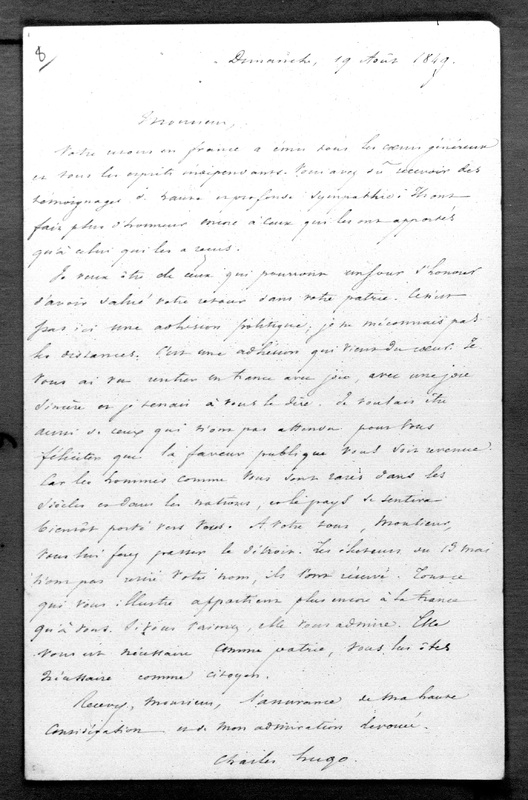 8
Dimanche, 19 Août 1849.
Monsieur,
Votre retour en france a ému tous les cœurs généreux
et tous les esprits indépendants. Vous avez dû recevoir des
témoignages de haute et profonde sympathie: Ils ont
fait plus d'honneur encore à ceux qui les ont apportés
qu'à celui qui les a reçus.
Je veux être de ceux qui pourront un jour s'honorer
d'avoir salué votre retour dans votre patrie. Ce n'est
pas ici une adhésion politique, je ne méconnais pas
les distances. C'est une adhésion qui vient du cœur. Je
vous ai vu rentrer en France avec joie, avec une joie
sincère et je tenais à vous le dire. Je voulais être
aussi de ceux qui n'ont pas attendu pour vous
féliciter que la faveur publique vous soit revenue.
Car les hommes comme vous sont rares dans les
siècles et dans les nations, et le pays se sentira
bientôt porté vers vous. A votre tour, Monsieur,
vous lui ferez passer le détroit. Les électeurs du 13 mai
n'ont pas vous votre nom, ils l'ont réservé. Tout ce
qui vous illustre appartient plus encore à la France
qu'à vous. Si vous l'aimez, elle vous admire. Elle
vous est nécessaire comme patrie, vous lui êtes
nécessaire comme citoyen.
Recevez, Monsieur, l'assurance de ma haute
considération et de mon admiration dévouée.
Charles hugo.